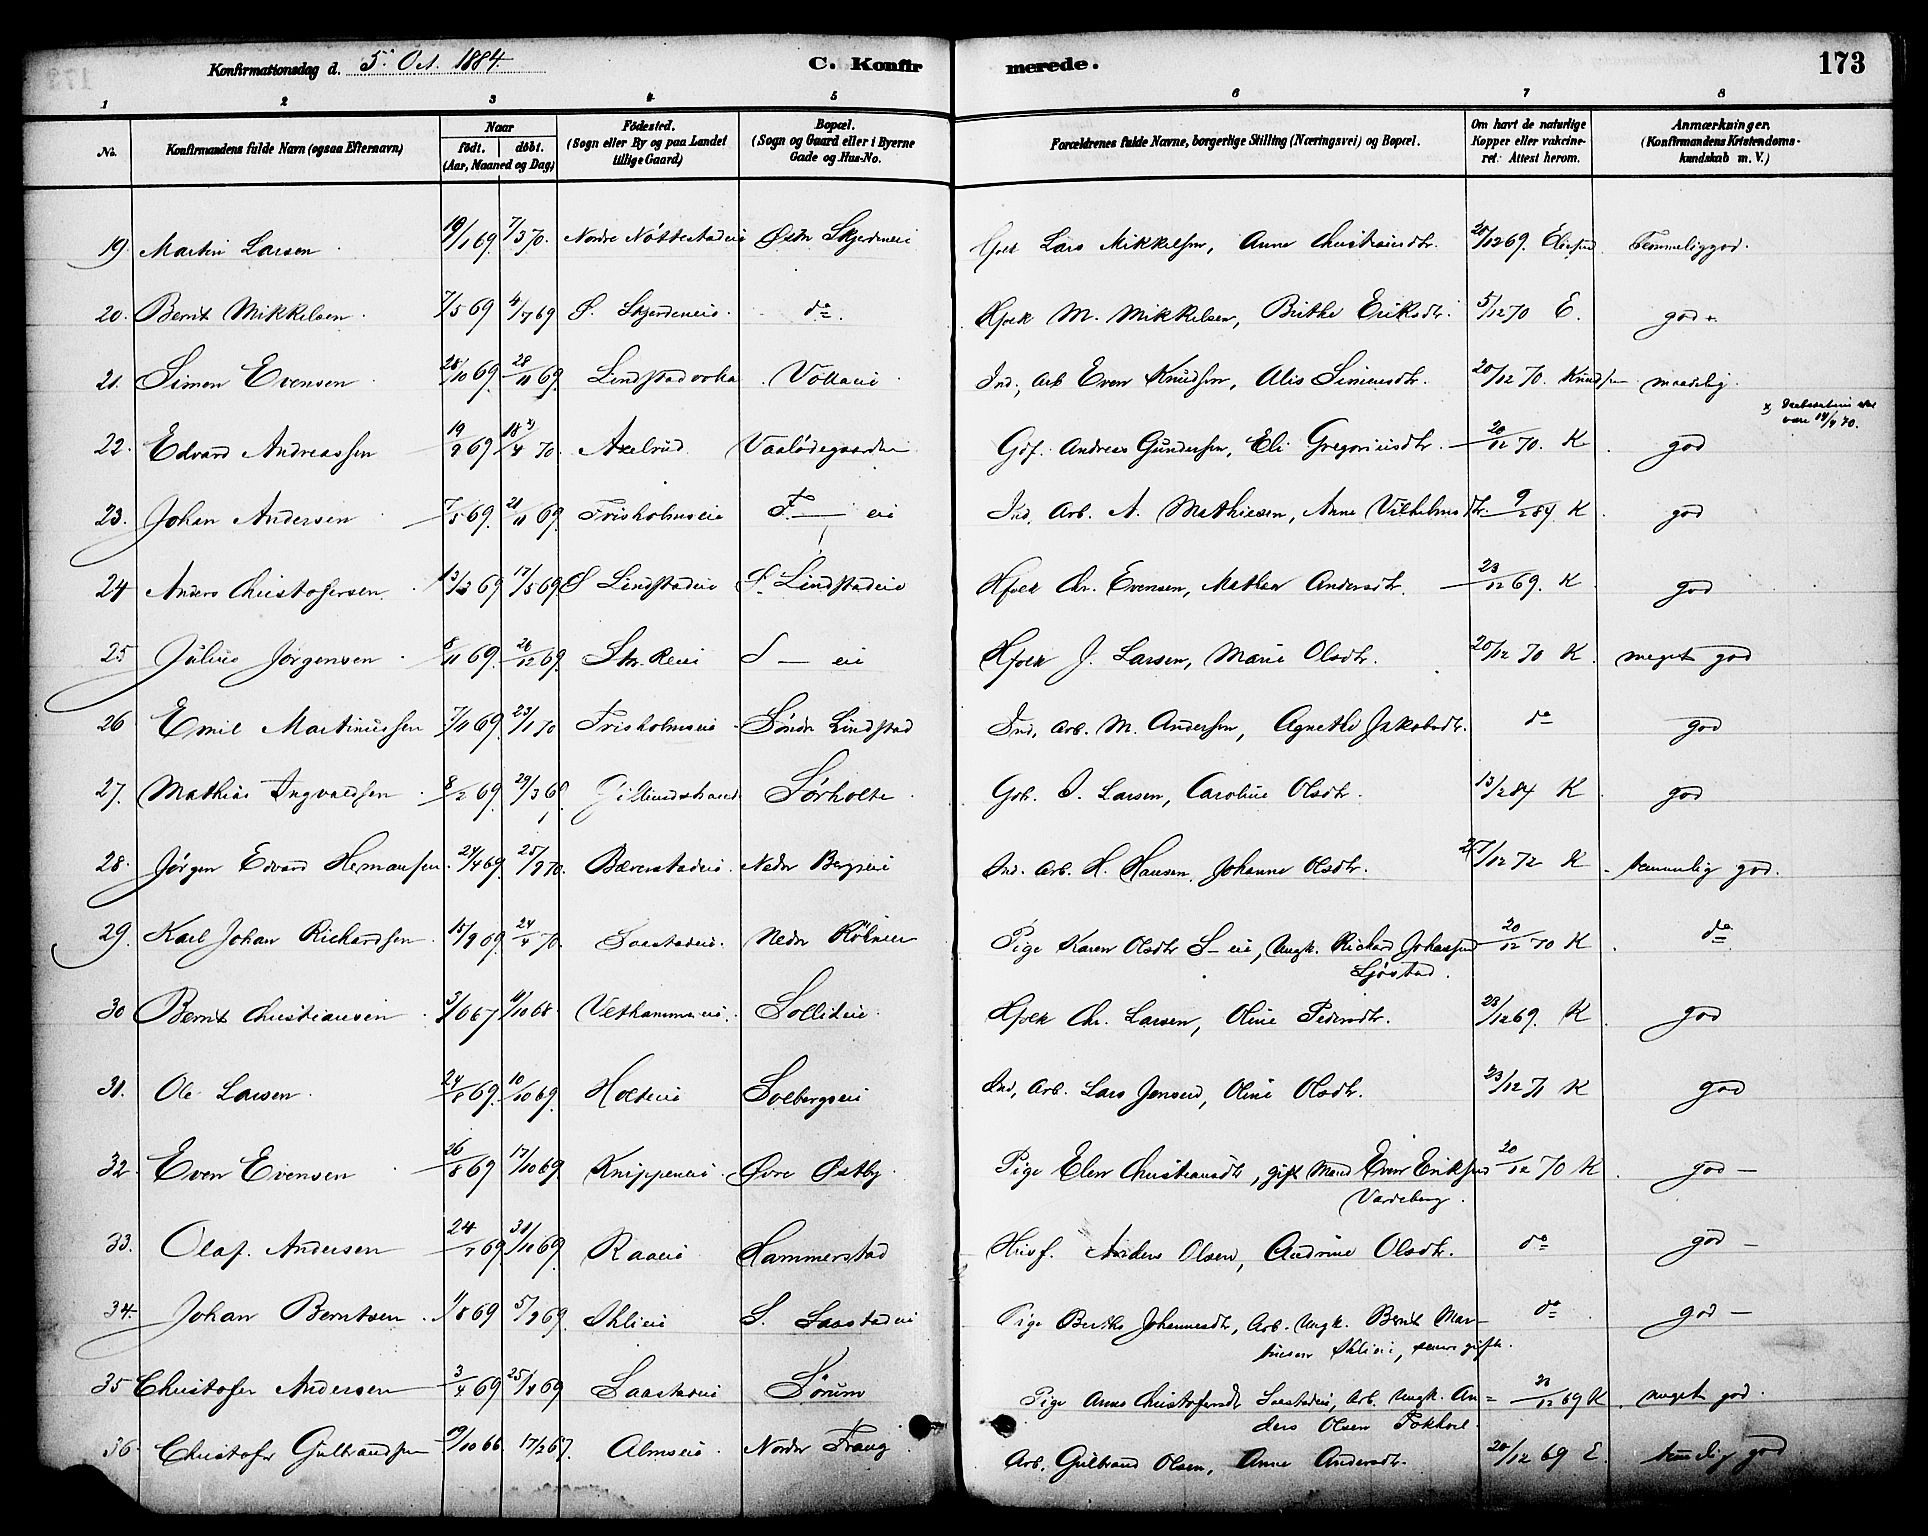 Konfirmationsdag d. 5. Oct. 1884. C. Konfirmerede. 173
1 2 3 4 5 6 7 8
No. Konfirmandens fulde Navn (ogsaa Efternavn) Naar født. døbt. (Aar, Maaned og Dag) Fødested. (Sogn eller By og paa Landet tillige Gaard) Bopæl. (Sogn og Gaard eller i Byerne Gade og Hus-No. Forældrenes fulde Navne, borgerlige Stilling (Næringsvei) og Bopæl. Om havt de naturlige Kopper eller vakcineret. Attest herom. Anmærkninger. (Konfirmandens Kristendomskundskab m. V.)
19. Martin Larsen 19/1 69. 7/3 70. Nordre Nöttestadeie Østr Skjerdeneie Hfolk Lars Mikkelsen, Anne Christiansdtr. 20/12 69. Temmelig god.
20. Bernt Mikkelsen. 7/5 69 4/7 69 Ø. Skjerdeneie. do. Hfolk M. Mikkelsen, Birthe Eriksdtr. 5/12 70 E. god
21. Simen Evensen 28/10 69. 28/11 69. Vollaeie Ind, Arb Even Knudsen, Alis Simensdtr. 20/12 70. Knudsen maadelig.
22. Edvard Andreassen 19/9 69 18/4 70 x) Axelrud Vaalødegaarden Gdf. Andreas Gundersen, Eli Gregoriusdtr. 20/12 70. K god x) 14/4 70.
23. Johan Andersen 7/5 69. 21/11 69. Frisholmseie F— eie Ind. Arb. A. Mathiesen, Anne Vilhelmsdtr. 9/2 84 K god
24 Anders Christofersen 13/3 69 17/5 69 S Lindstadeie S. Lindstadeie Hfolk Chr. Evensen, Mathea Andersdtr. 23/12 69. K god
25 Julius Jørgensen 8/11 69. 26/12 69. Str. Reeie S — eie Hfolk J. Larsen, Marie Olsdtr. 20/12 70 K. meget god
26 Emil Martinussen 7/11 69. 23/1 70 Frisholmseie Søndr Lindstad Ind, Arb. M. Andersen, Agnethe Jakobsdtr. do god
27. Mathias Ingvaldsen 8/2 69. 29/3 69. Gillundstrand Sørholte Gbr. I. Larsen, Caroline Olsdtr. 13/2 84 K god
28. Jørgen Edvard Hermansen. 24/4 69. 25/9 70. Bæverstadeie. Nedr Bergseie Ind. Arb. H. Hansen, Johanne Olsdtr. 27/12 72 K temmelig god.
29. Karl Johan Richardsen 15/9 69. 24/4 70. Saastadeie. Nedr Pige Karen Olsdtr S— eie, Ungk. Richard Johansen 20/12 70 K do
Sjøstad.
30 Bernt Christiansen 3/6 67 11/10 68. Vethammereie. Solliteie. Hfolk Chr. Larsen, Oline Pedersdtr. 23/12 69. K god
31. Ole Larsen 24/8 69. 10/10 69. Holteeie Solbergseie Ind, Arb. Lars Jensen, Oline Olsdtr. 23/12 71 K god
32. Even Evensen 26/8 69 17/10 69. Knippeneie Øvre Østby Pige Elen Christiansdtr, gift Mand Even Eriksen 20/12 70 K god —
Vardeberg.
33. Olaf. Andersen 24/7 69. 31/10 69. Raaeie Hammerstad Anders Olsen, Andrine Olsdtr. do god —
34. Johan Berntsen 1/8 69 5/9 69. Ihlieie S. Saastadeie Pige Berthe Johannesdtr, Arb. Ungk. Bernt Mar-
tinsen Ihlieie, senere gift. do god —
35 Christofer Andersen 3/4 69 25/4 69 Saastadeie Sørum Pige Anne Christofersdtr Saastadeie, Arb. Ungk. An- 23/12 69 K meget god.
ders Olsen
36. Christofer Gulbrandsen 9/10 66. 17/2 67. Almseie. Nordr Frang Arb. Gulbrand Olsen, Anne Andersdtr. 20/12 69 E. temmelig god